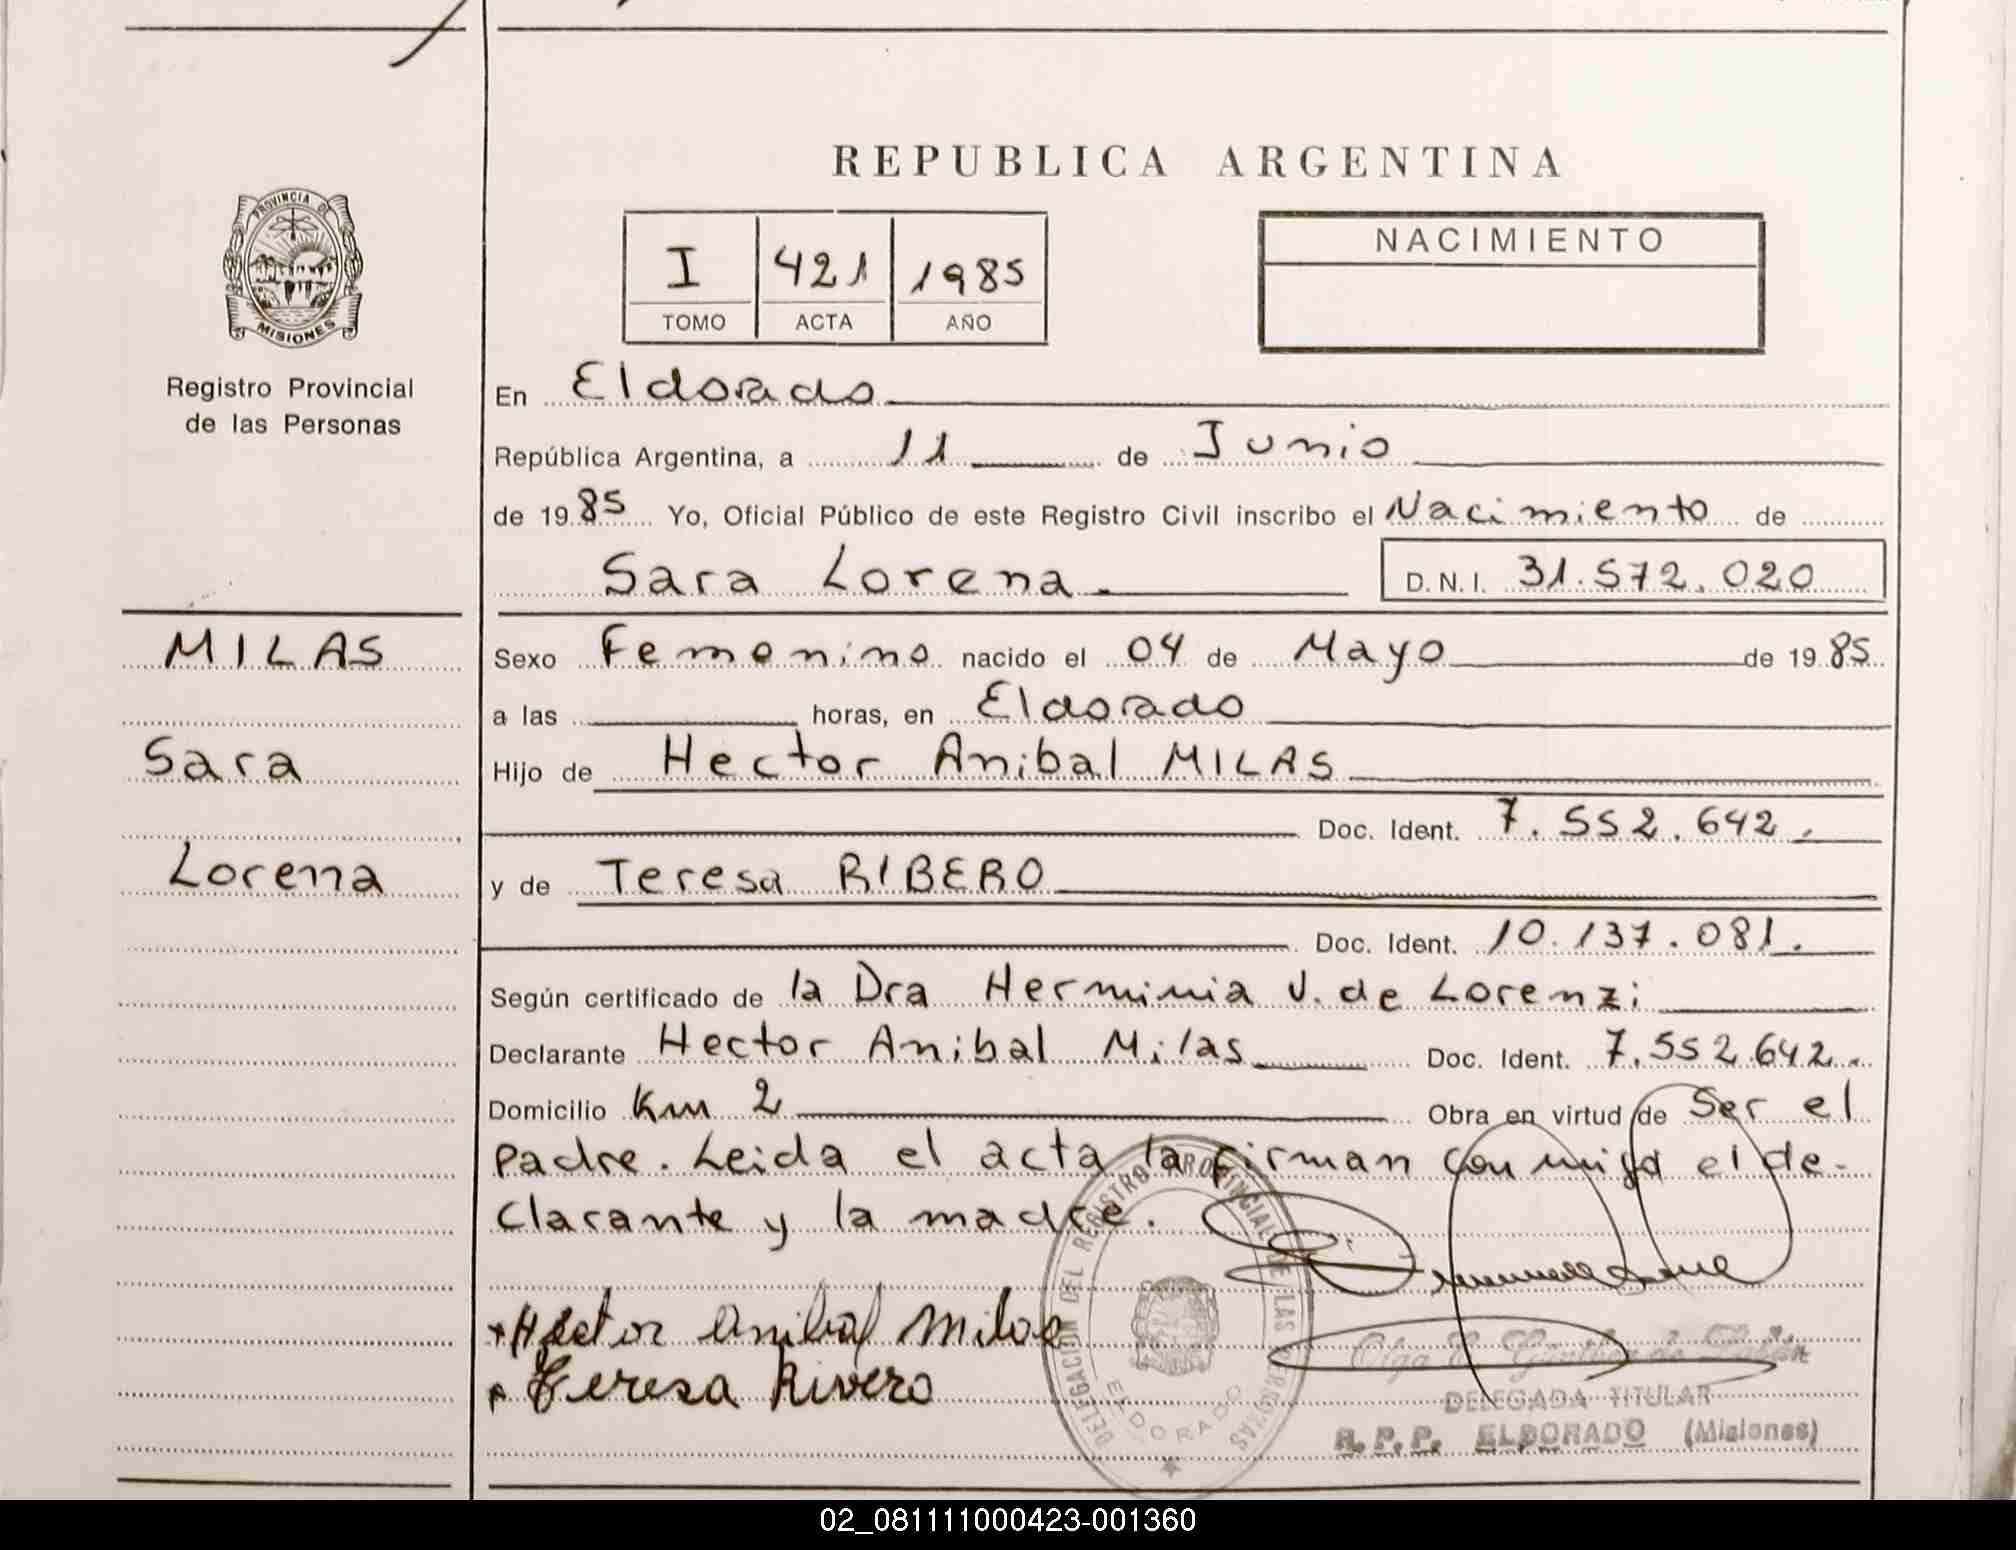 REPUBLICA ARGENTINA
PROVINCIA DE
MISIONES
Registro Provincial
de las Personas
I 421 1985
TOMO ACTA AÑO
NACIMIENTO
En Eldorado
República Argentina, a 11 de Junio
de 1985 Yo, Oficial Público de este Registro Civil inscribo el Nacimiento de
Sara Lorena D.N.I. 31.572.020
MILAS
Sara
Lorena
Sexo Femenino nacido el 04 de Mayo de 1985
a las horas, en Eldorado
Hijo de Hector Anibal MILAS
Doc. Ident. 7.552.642.
y de Teresa RIBERO
Doc. Ident. 10.137.081.
Según certificado de la Dra Herminia V. de Lorenzi
Declarante Hector Anibal Milas Doc. Ident. 7.552.642.
Domicilio Km 2 Obra en virtud de Ser el
padre. Leida el acta la firman conmigo el de-
clarante y la madre.
Hector Anibal Milas
Teresa Rivero
DELEGACION DEL REGISTRO PROVINCIAL DE LAS PERSONAS
ELDORADO
Olga E.
DELEGADA TITULAR
R.P.P. ELDORADO (Misiones)
02_081111000423-001360